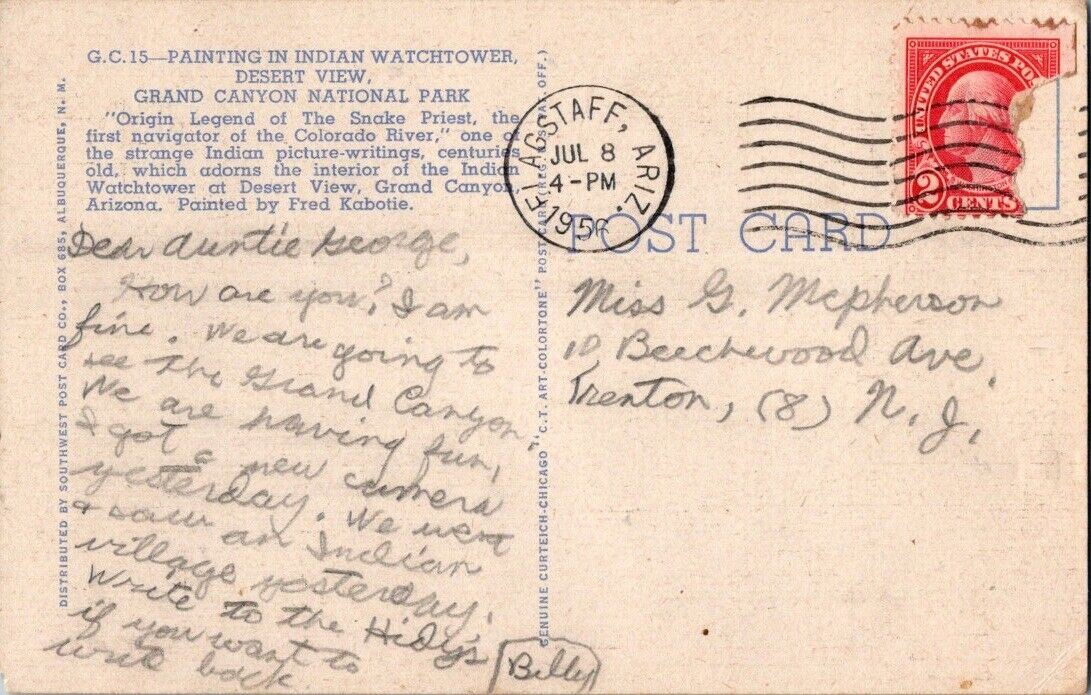 G.C.15—PAINTING IN INDIAN WATCHTOWER,
DESERT VIEW,
GRAND CANYON NATIONAL PARK
"Origin Legend of The Snake Priest, the
first navigator of the Colorado River," one of
the strange Indian picture-writings, centuries
old, which adorns the interior of the Indian
Watchtower at Desert View, Grand Canyon,
Arizona. Painted by Fred Kabotie.
Dear Auntie George,
How are you? I am
fine. We are going to
see the Grand Canyon.
We are having fun,
I got a new camera
yesterday. We went
& saw an Indian
village yesterday.
Write to the Hidy's
if you want to
write back.
Billy
DISTRIBUTED BY SOUTHWEST POST CARD CO., BOX 685, ALBUQUERQUE, N. M.
GENUINE CURTEICH-CHICAGO "C.T. ART-COLORTONE" POST CARD (REG. U.S. PAT. OFF.)
FLAGSTAFF, ARIZ.
JUL 8
4-PM
1956
UNITED STATES
2 CENTS
POST CARD
Miss G. Mcpherson
10 Beechwood Ave.
Trenton, (8) N. J.